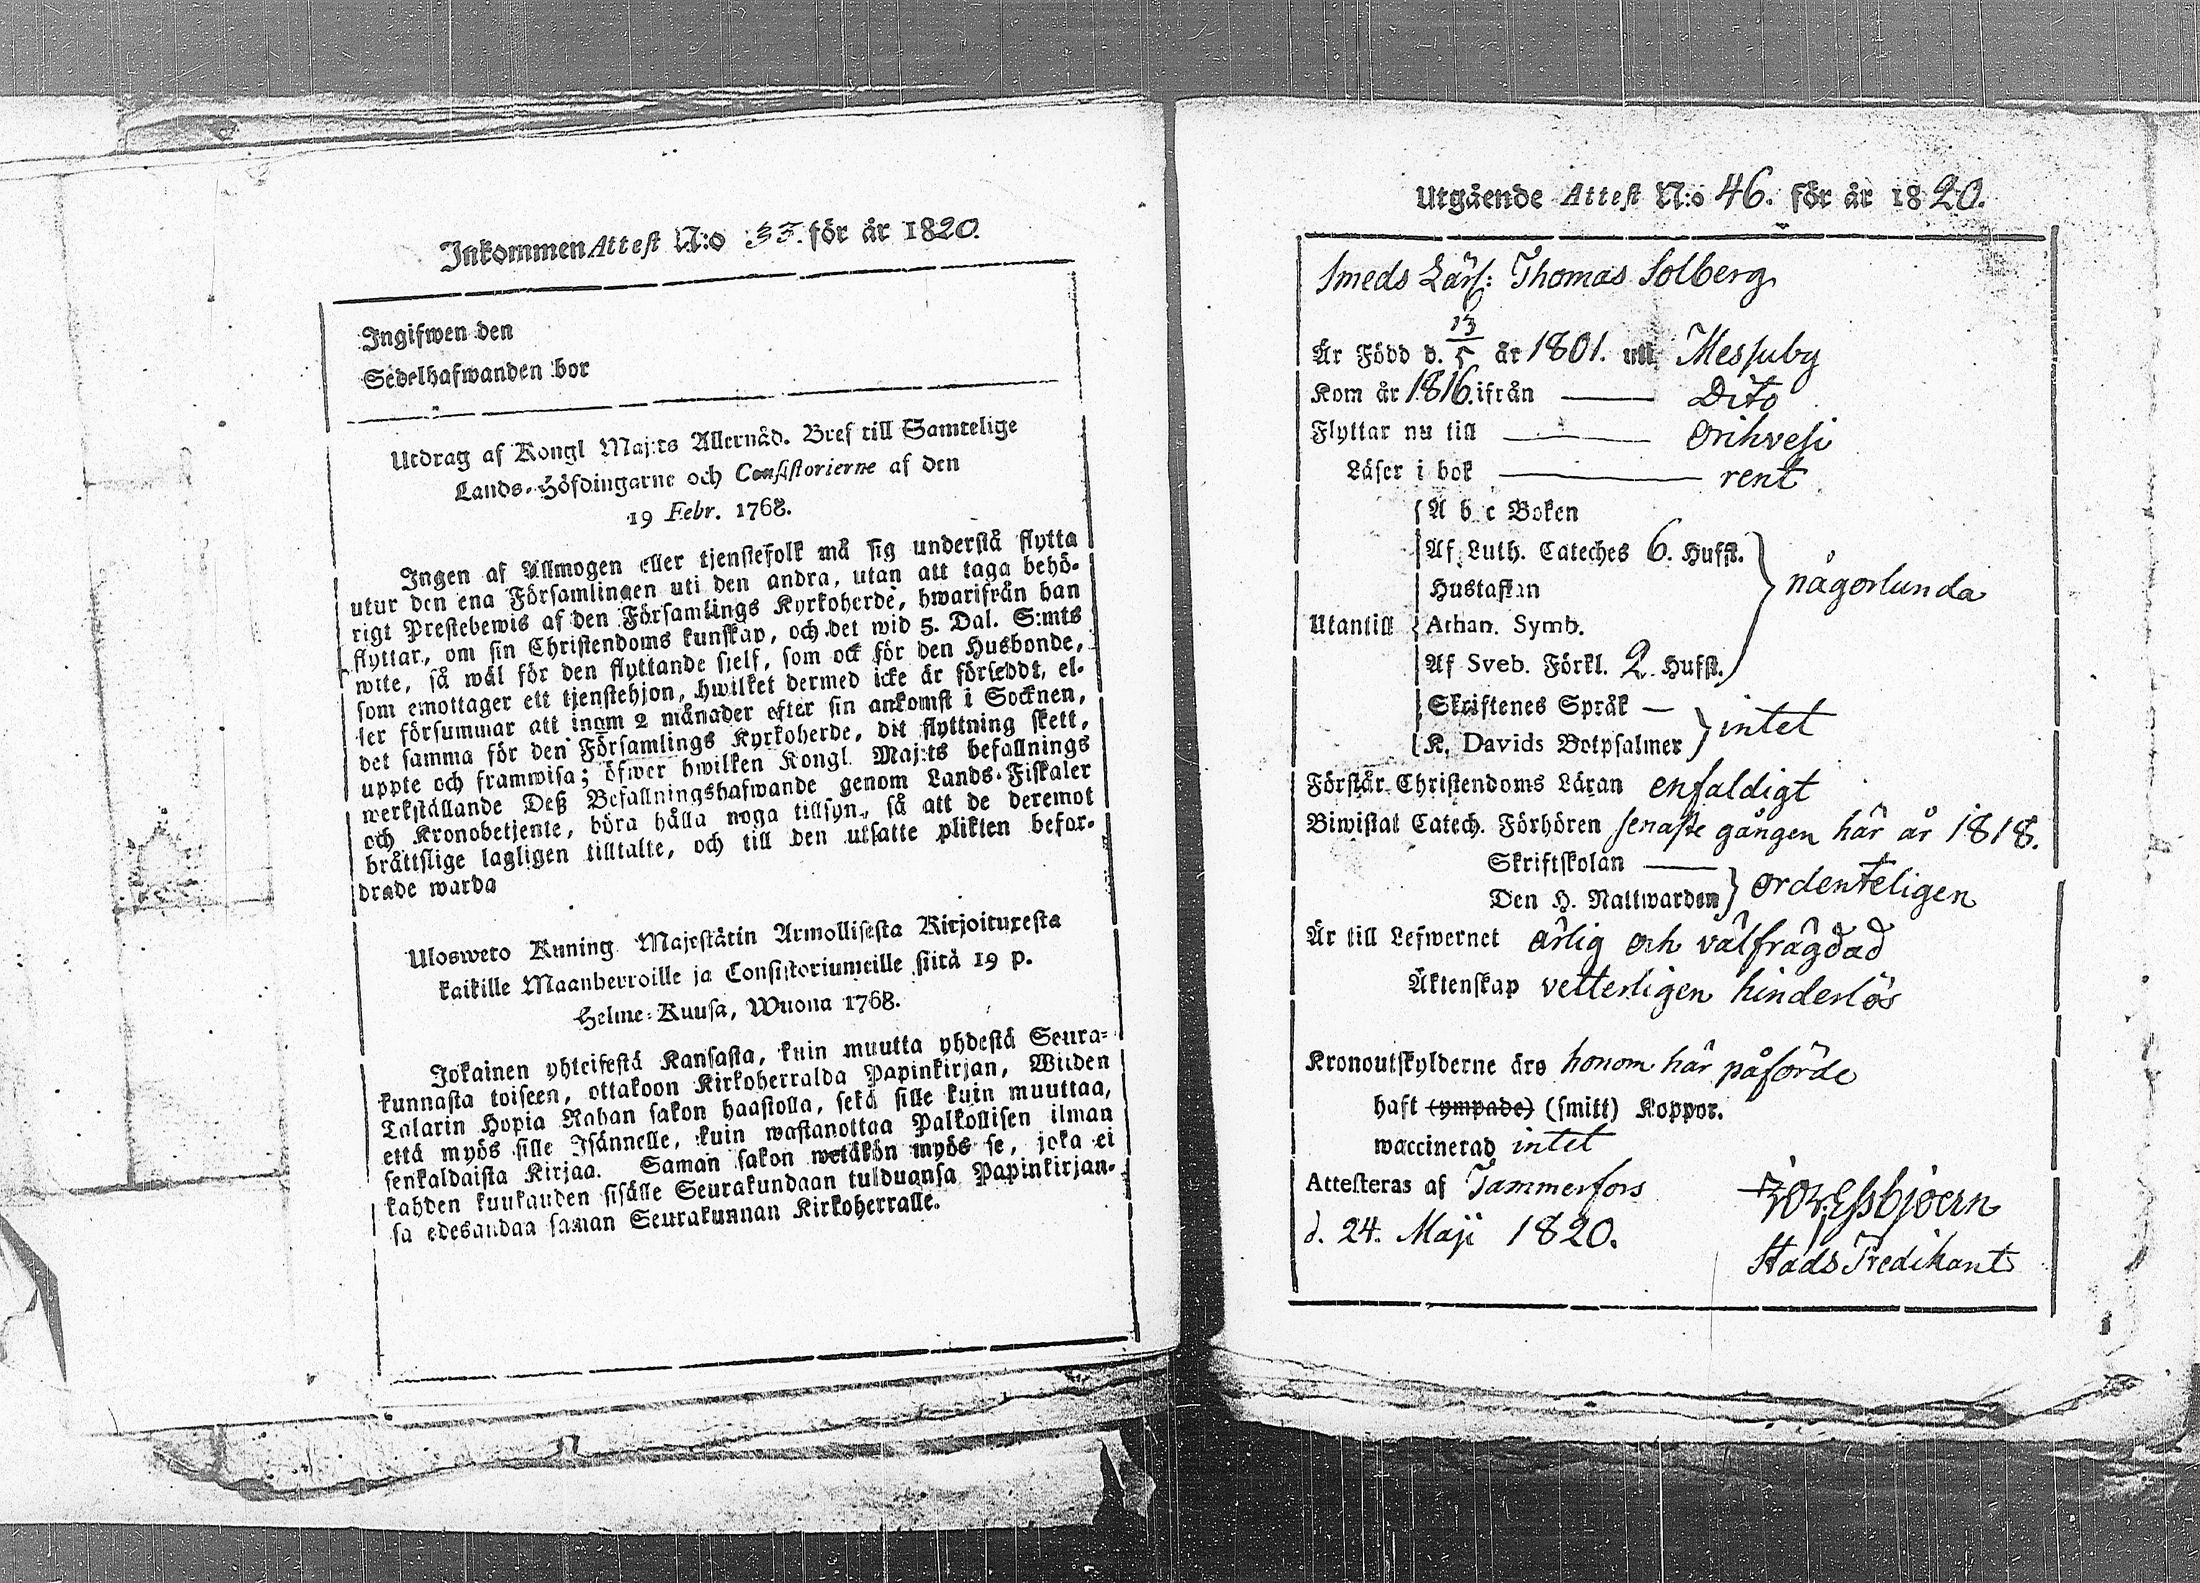 Inkommen Attest N:o 33. för år 1820.
Ingifwen den
Sedelhafwanden bor
Utdrag af Kongl Maj:ts Allernåd. Bref till Samtelige
Lands-Höfdingarne och Consistorierne af den
19 Febr. 1768.
Ingen af Allmogen eller tjenstefolk må sig understå flytta
utur den ena Församlingen uti den andra, utan att taga behö-
rigt Prestebewis af den Församlings Kyrkoherde, hwarifrån han
flyttar, om sin Christendoms kunskap, och det wid 5. Dal. S:mts
wite, så wäl för den flyttande sjelf, som ock för den Husbonde,
som emottager ett tjenstehjon, hwilket dermed icke är förseddt, el-
ler försummar att inom 2 månader efter sin ankomst i Socknen,
det samma för den Församlings Kyrkoherde, dit flyttning skett,
uppte och framwisa; öfwer hwilken Kongl. Maj:ts befallnings
werkställande Deß Befallningshafwande genom Lands-Fiskaler
och Kronobetjente, böra hålla noga tillsyn, så att de deremot
bråttslige lagligen tilltalte, och till den utsatte plikten befor-
drade warda
Ulosweto Kuning Majestätin Armollisesta Kirjoituxesta
kaikille Maanherroille ja Consistoriumeille siitä 19 p.
Helme-Kuusa, Wuona 1768.
Jokainen yhteisestä Kansasta, kuin muutta yhdestä Seura-
kunnasta toiseen, ottakoon Kirkoherralda Papinkirjan, Wiiden
Talarin Hopia Rahan sakon haastolla, sekä sille kuin muuttaa,
että myös sille Isännelle, kuin wastanottaa Palkollisen ilman
senkaldaista Kirjaa. Saman sakon wetäkön myös se, joka ei
kahden kuukauden sisälle Seurakundaan tulduansa Papinkirjan-
sa edesandaa saman Seurakunnan Kirkoherralle.
Utgående Attest N:o 46. för år 1820.
Smeds Lärl: Thomas Solberg
Är Född d. 13/5 år 1801. uti Messuby
Kom år 1816. ifrån — Dito
Flyttar nu till — Orihvesi
Läser i bok — rent
A b c Boken
Af Luth. Cateches 6. Hufst.
Hustaflan
någorlunda
Utantill Athan. Symb.
Af Sveb. Förkl. 2. Hufst.
Skriftenes Språk —
K. Davids Botpsalmer intet
Förstår Christendoms Läran enfaldigt
Biwistat Catech. Förhören senaste gången här år 1818.
Skriftskolan —
Den H. Nattwarden ordenteligen
Är till Lefwernet ärlig och välfrägdad
Äktenskap vetterligen hinderlös
Kronoutskylderne äro honom här påförde
haft (ympade) (smitt) Koppor.
waccinerad intet
Attesteras af Tammerfors
d. 24. Maji 1820.
Essbjoern
Stads Predikant